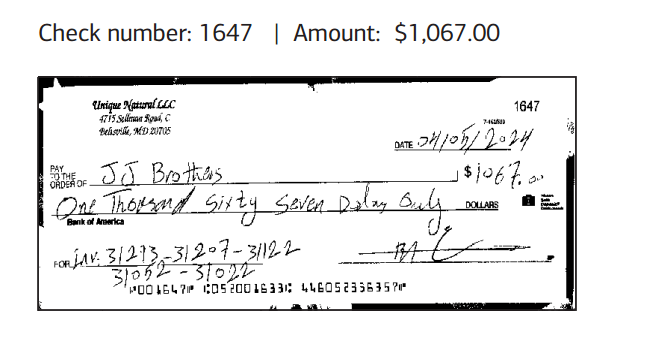 Check number: 1647 | Amount: $1,067.00
Unique Natural LLC 1647
4715 Sellman Road, C
Beltsville, MD 20705
DATE 04/05/2024
PAY TO THE ORDER OF JJ Brothers $1067.00
One Thousand Sixty Seven Dolay Only DOLLARS
Bank of America
FOR inv: 31213-31207-31122
31052-31022
⑈001647⑈ ⑆052001633⑆ 446052336357⑈